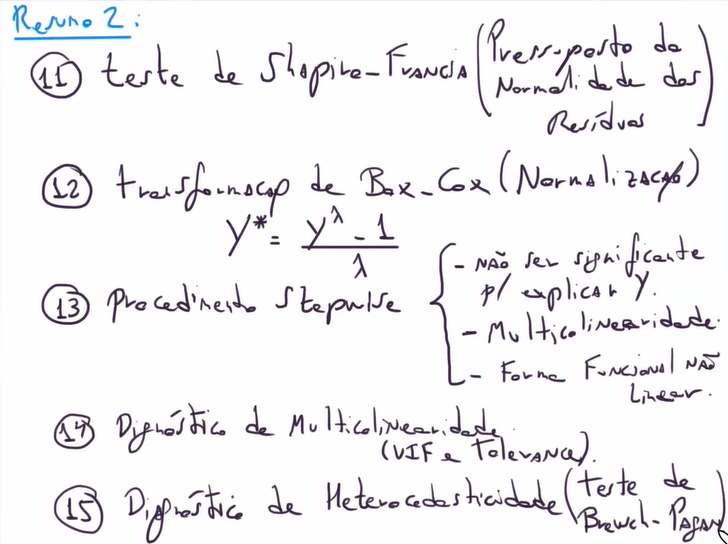 Resumo 2:
(11) teste de Shapiro-Francia (Pressuposto da
Normalidade dos
Resíduos)
(12) transformação de Box-Cox (Normalização)
Y* = (Y^λ - 1) / λ
(13) Procedimento Stepwise { - NÃO ser significante
p/ explicar Y.
- Multicolinearidade.
- Forma Funcional NÃO
Linear.
(14) Diagnóstico de Multicolinearidade
(VIF e Tolerance).
(15) Diagnóstico de Heterocedasticidade (teste de
Breusch-Pagan)